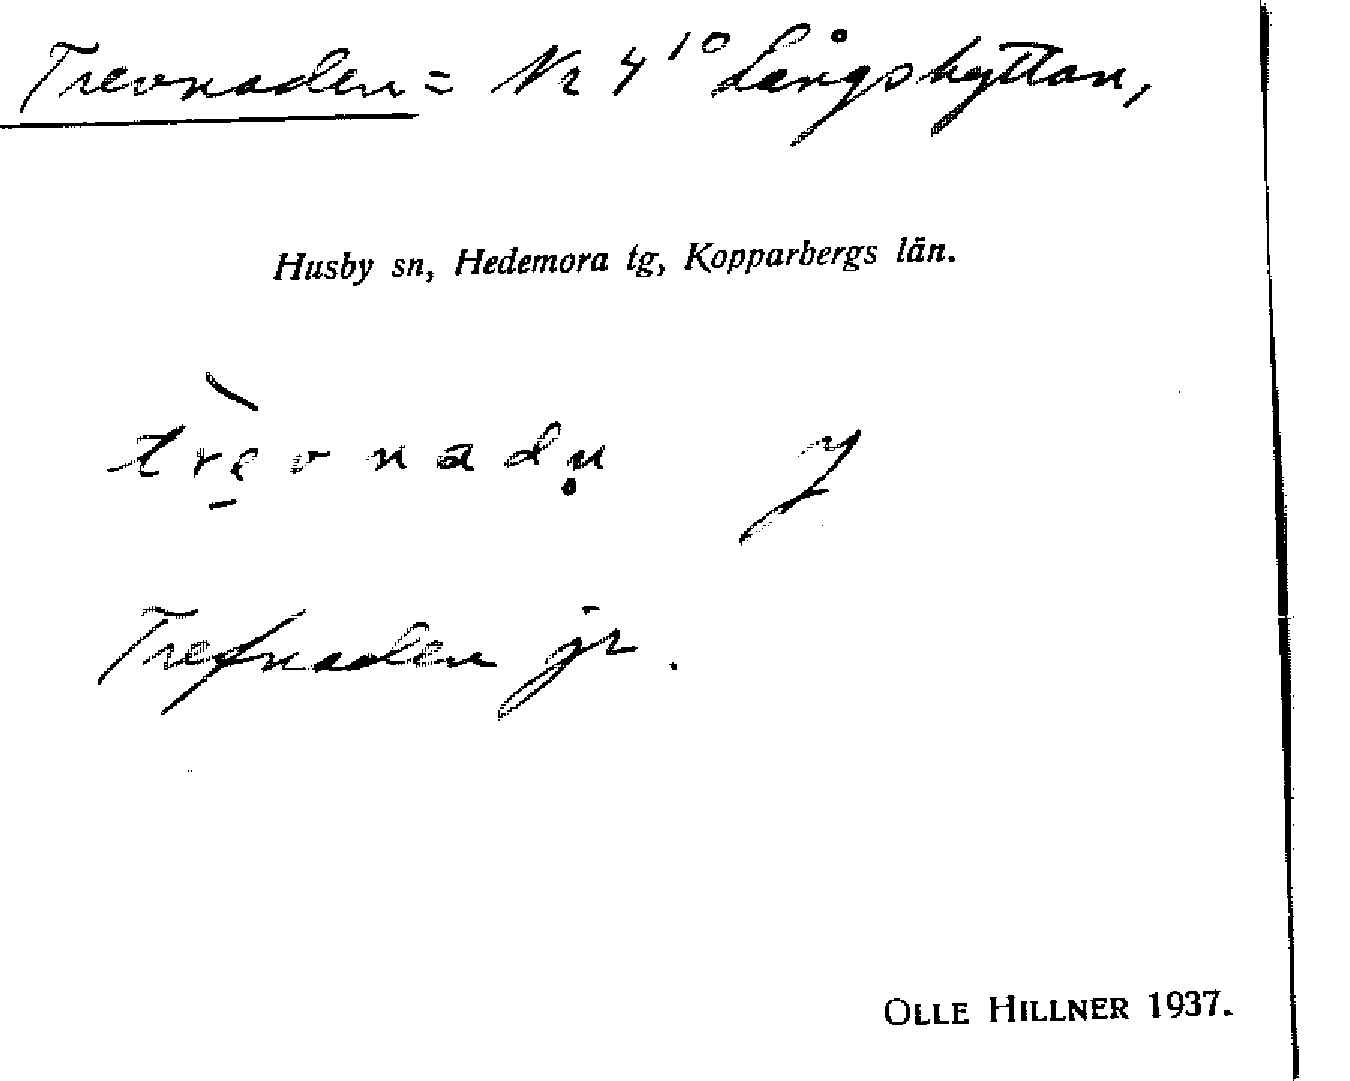 Trevnaden = Nr 4¹⁰ Långshyttan,
Husby sn, Hedemora tg, Kopparbergs län.
trè̱vnadṇ
Trefnaden jr.
OLLE HILLNER 1937.